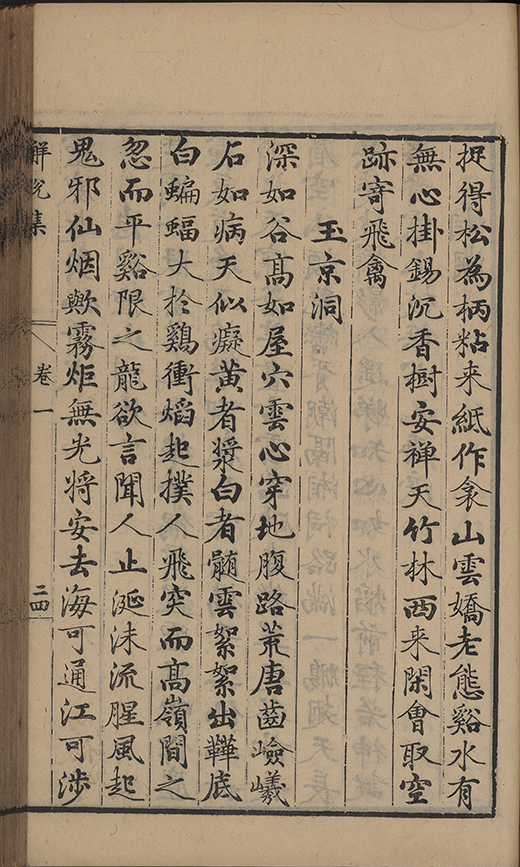 捉得松為柄粘来紙作衾山雲嬌老態谿水有
無心掛錫沉香樹安禅天竹林西来閑會取空
跡寄飛禽
玉京洞
深如谷髙如屋穴雲心穿地腹路荒唐齒嶮巇
石如病天似癡黄者漿白者髄雲絮絮出鞾底
白蝙蝠大扵鷄衝熖起撲人飛突而髙嶺間之
忽而平谿限之龍欲言聞人止涎沫流腥風起
鬼邪仙烟歟霧炬無光将安去海可通江可涉
解脫集
卷一
二四